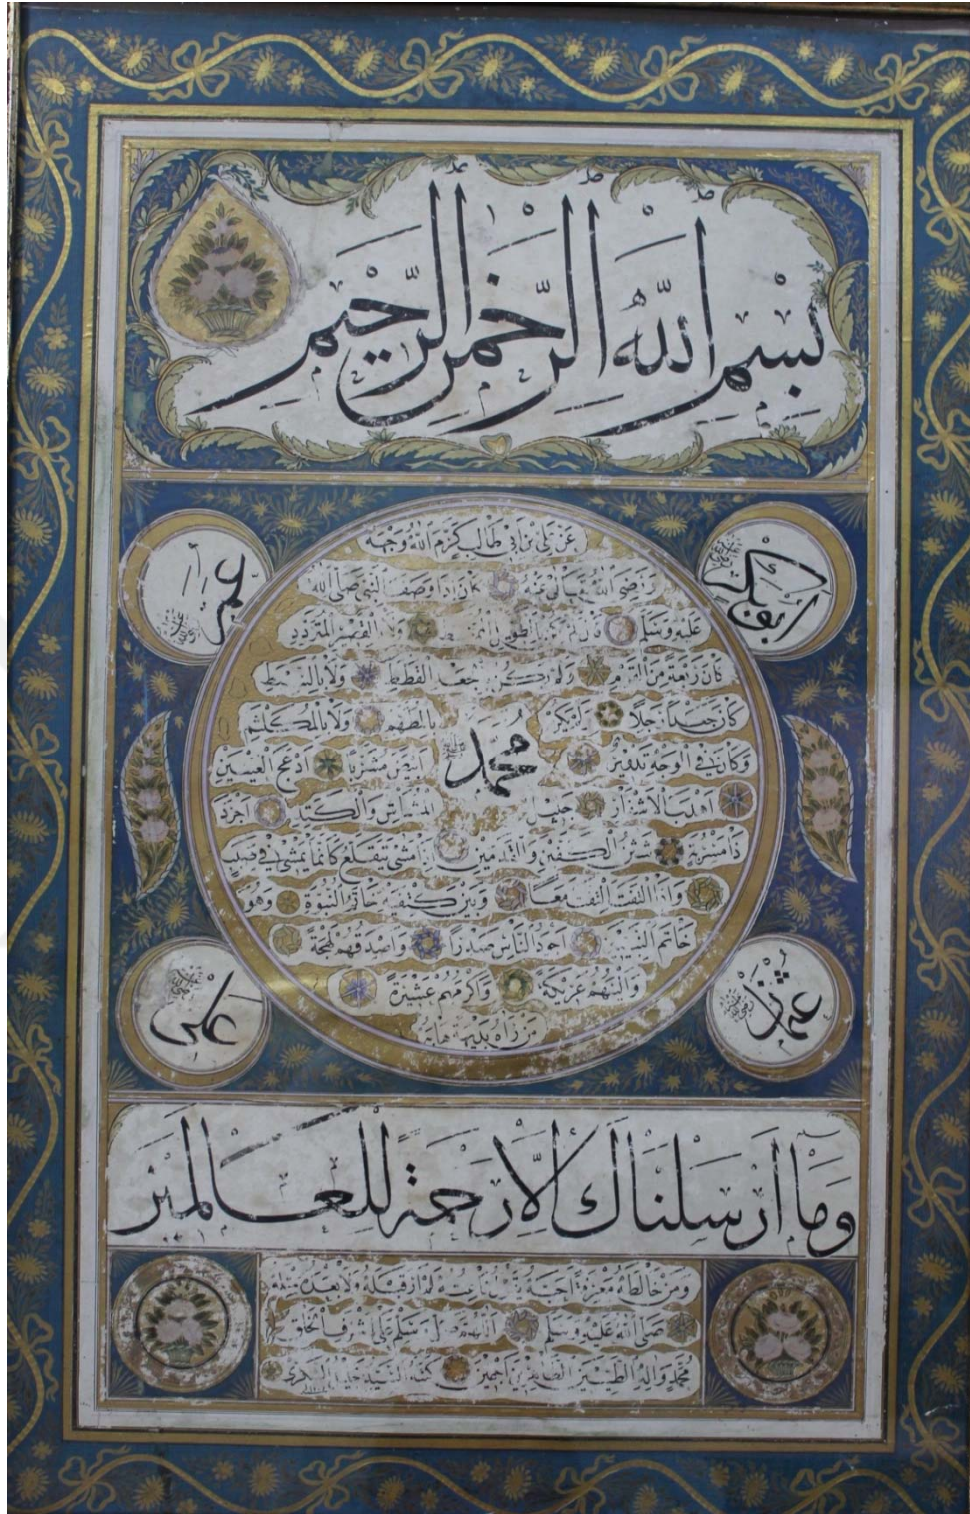 بسم الله الرحمن الرحيم
ابو بكر رضي الله عنه
عمر رضي الله عنه
عن علي بن ابي طالب كرم الله وجهه
رضى الله تعالى عنه كان اذا وصف النبي صلى الله
عليه وسلم قال لم يكن بالطويل الممغط ولا القصير المتردد
كان ربعة من القوم ولم يكن جعد القطط ولا بالسبط
كان جعدا رجلا ولم يكن بالمطهم ولا بالمكلثم
محمد
وكان في الوجه تدوير ابيض مشربا ادعج العينين
اهدب الاشفار جليل المشاش والكتد اجرد
ذا مسربة شثن الكفين والقدمين اذا مشى يتقلع كانما يمشي في صبب
واذا التفت التفت معا وبين كتفيه خاتم النبوة وهو
خاتم النبيين اجود الناس صدرا واصدقهم لهجة
والينهم عريكة واكرمهم عشيرة
من رآه بديهة هابه
عثمان رضي الله عنه
علي رضي الله عنه
وما ارسلناك الا رحمة للعالمين
ومن خالطه معرفة احبه يقول ناعته لم ار قبله ولا بعده مثله
صلى الله عليه وسلم اللهم صل وسلم على اشرف الخلق
محمد واله الطيبين الطاهرين اجمعين كتبه السيد